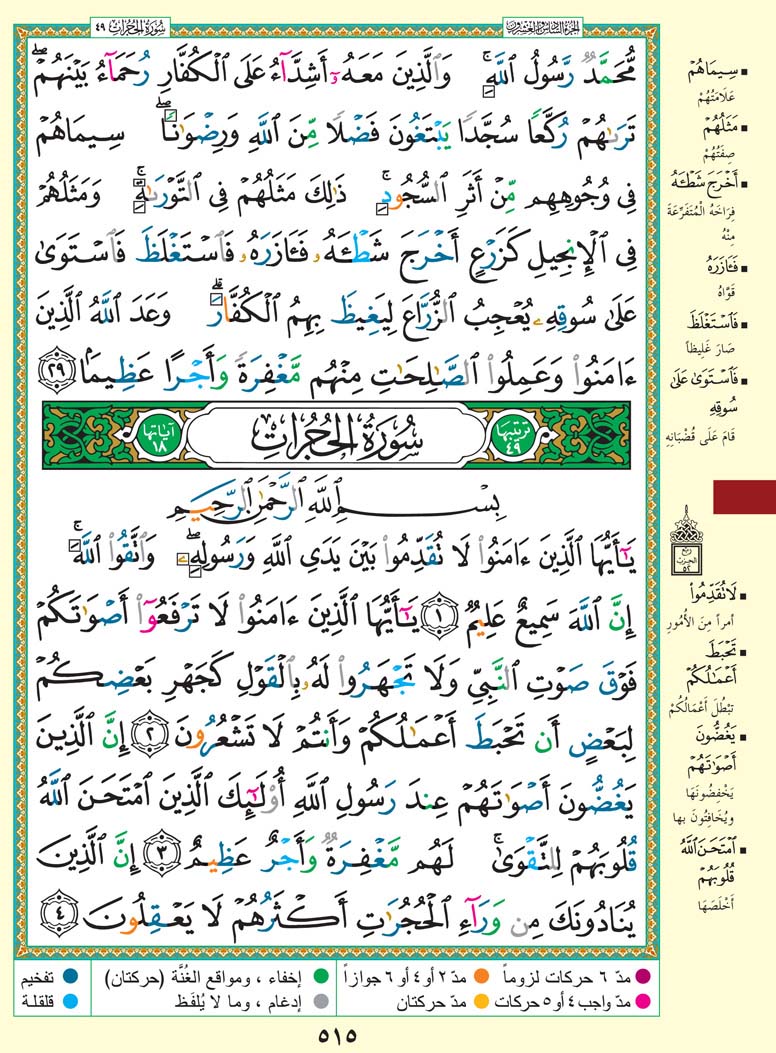 الجزء السادس والعشرون
سُورَةُ الحُجُرَات ٤٩
مُّحَمَّدٌ رَّسُولُ ٱللَّهِۚ وَٱلَّذِينَ مَعَهُۥٓ أَشِدَّآءُ عَلَى ٱلۡكُفَّارِ رُحَمَآءُ بَيۡنَهُمۡۖ
تَرَىٰهُمۡ رُكَّعٗا سُجَّدٗا يَبۡتَغُونَ فَضۡلٗا مِّنَ ٱللَّهِ وَرِضۡوَٰنٗاۖ سِيمَاهُمۡ
فِي وُجُوهِهِم مِّنۡ أَثَرِ ٱلسُّجُودِۚ ذَٰلِكَ مَثَلُهُمۡ فِي ٱلتَّوۡرَىٰةِۚ وَمَثَلُهُمۡ
فِي ٱلۡإِنجِيلِ كَزَرۡعٍ أَخۡرَجَ شَطۡـَٔهُۥ فَـَٔازَرَهُۥ فَٱسۡتَغۡلَظَ فَٱسۡتَوَىٰ
عَلَىٰ سُوقِهِۦ يُعۡجِبُ ٱلزُّرَّاعَ لِيَغِيظَ بِهِمُ ٱلۡكُفَّارَۗ وَعَدَ ٱللَّهُ ٱلَّذِينَ
ءَامَنُواْ وَعَمِلُواْ ٱلصَّٰلِحَٰتِ مِنۡهُم مَّغۡفِرَةٗ وَأَجۡرًا عَظِيمَۢا ٢٩
ترتيبها ٤٩ سُورَةُ الحُجُرَاتِ آياتها ١٨
بِسۡمِ ٱللَّهِ ٱلرَّحۡمَٰنِ ٱلرَّحِيمِ
يَٰٓأَيُّهَا ٱلَّذِينَ ءَامَنُواْ لَا تُقَدِّمُواْ بَيۡنَ يَدَيِ ٱللَّهِ وَرَسُولِهِۦۖ وَٱتَّقُواْ ٱللَّهَۚ
إِنَّ ٱللَّهَ سَمِيعٌ عَلِيمٞ ١ يَٰٓأَيُّهَا ٱلَّذِينَ ءَامَنُواْ لَا تَرۡفَعُوٓاْ أَصۡوَٰتَكُمۡ
فَوۡقَ صَوۡتِ ٱلنَّبِيِّ وَلَا تَجۡهَرُواْ لَهُۥ بِٱلۡقَوۡلِ كَجَهۡرِ بَعۡضِكُمۡ
لِبَعۡضٍ أَن تَحۡبَطَ أَعۡمَٰلُكُمۡ وَأَنتُمۡ لَا تَشۡعُرُونَ ٢ إِنَّ ٱلَّذِينَ
يَغُضُّونَ أَصۡوَٰتَهُمۡ عِندَ رَسُولِ ٱللَّهِ أُوْلَٰٓئِكَ ٱلَّذِينَ ٱمۡتَحَنَ ٱللَّهُ
قُلُوبَهُمۡ لِلتَّقۡوَىٰۚ لَهُم مَّغۡفِرَةٞ وَأَجۡرٌ عَظِيمٌ ٣ إِنَّ ٱلَّذِينَ
يُنَادُونَكَ مِن وَرَآءِ ٱلۡحُجُرَٰتِ أَكۡثَرُهُمۡ لَا يَعۡقِلُونَ ٤
سِيمَاهُمۡ
عَلَامَتُهُمْ
مَثَلُهُمۡ
صِفَتُهُمْ
أَخۡرَجَ شَطۡـَٔهُ
فِرَاخَهُ المُتَفَرِّعَةَ
مِنْهُ
فَـَٔازَرَهُ
قَوَّاهُ
فَٱسۡتَغۡلَظَ
صَارَ غَلِيظاً
فَٱسۡتَوَىٰ عَلَىٰ
سُوقِهِ
قَامَ عَلَى قُضْبَانِهِ
ربع
الحزب
٥٢
لَا تُقَدِّمُواْ
أمراً مِنَ الأُمُورِ
تَحۡبَطَ
أَعۡمَٰلُكُمۡ
تَبْطُلَ أَعْمَالُكُمْ
يَغُضُّونَ
أَصۡوَٰتَهُمۡ
يَخْفِضُونَهَا
ويُخَافِتُونَ بها
ٱمۡتَحَنَ ٱللَّهُ
قُلُوبَهُمۡ
أَخْلَصَهَا
مدّ ٦ حركات لزوماً مدّ ٢ أو ٤ أو ٦ جوازاً إخفاء ، ومواقع الغُنَّة (حركتان) تفخيم
مدّ واجب ٤ أو ٥ حركات مدّ حركتان إدغام ، وما لا يُلفَظ قلقلة
٥١٥